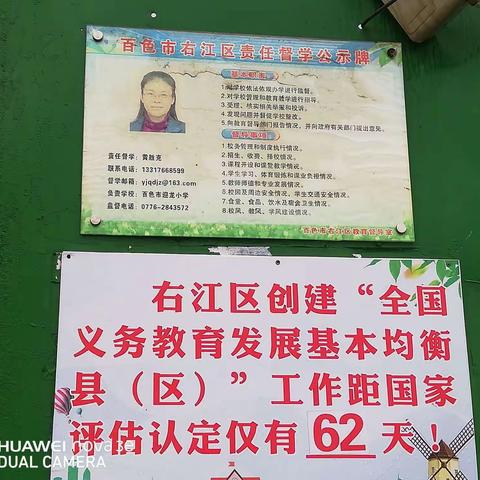 百色市右江区责任督学公示牌
基本职责
1.对学校依法依规办学进行监督。
2.对学校管理和教育教学进行指导。
3.受理、核实相关举报和投诉。
4.发现问题并督促学校整改。
5.向教育督导部门报告情况，并向政府有关部门提出意见。
督导事项
1.校务管理和制度执行情况。
2.招生、收费、择校情况。
3.课程开设和课堂教学情况。
4.学生学习、体育锻炼和课业负担情况。
5.教师师德和专业发展情况。
6.校园及周边安全情况，学生交通安全情况。
7.食堂、食品、饮水及宿舍卫生情况。
8.校风、教风、学风建设情况。
责任督学：黄胜克
联系电话：13317668599
督学邮箱：yjqdjz@163.com
负责学校：百色市迎龙小学
监督电话：0776-2843572
百色市右江区教育督导室
右江区创建“全国
义务教育发展基本均衡
县（区）”工作距国家
评估认定仅有 62 天！
HUAWEI nova 3e
DUAL CAMERA